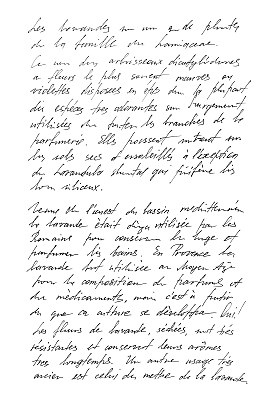 Les lavandes un 2 de plantes
de la famille des lamiaceae.
Ce sont des arbrisseaux dicotylédones
à fleurs le plus souvent mauves ou
violettes disposées en épis dont la plupart
des espèces très odorantes sont largement
utilisées dans toutes les branches de la
parfumerie. Elles poussent surtout sur
les sols secs et ensoleillés à l'exception
du Lavandula qui préfère les
siliceux.
Venue de l'ouest du bassin méditerranéen
la lavande était déjà utilisée par les
Romains pour conserver le linge et
parfumer les bains. En Provence la
lavande fut utilisée au Moyen Âge
pour la composition de parfums et
de médicaments, mais c'est à partir
du que sa culture se développa. Oui!
Les fleurs de lavande, séchées, sont très
résistantes et conservent leurs arômes
très longtemps. Un autre usage très
ancien est celui de mettre de la lavande